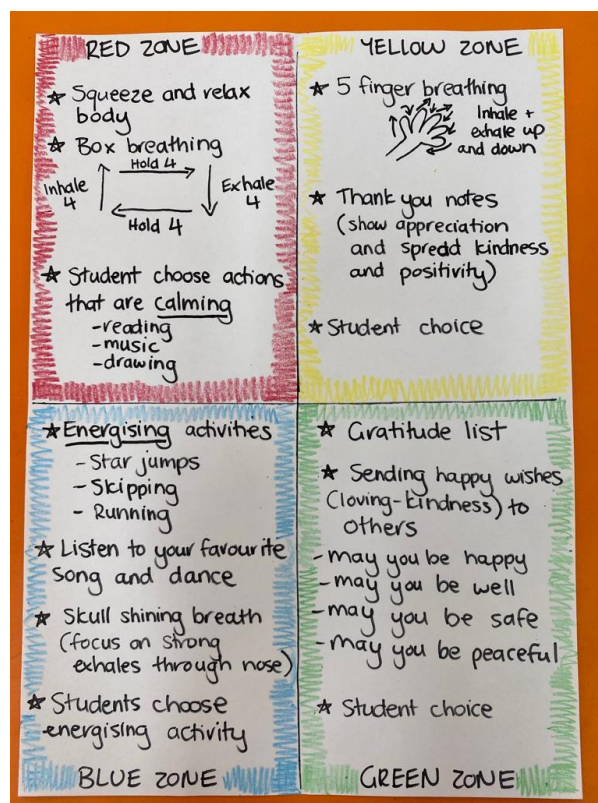 RED ZONE
★ Squeeze and relax
body
★ Box breathing
Hold 4
Inhale
4
Exhale
4
Hold 4
★ Student choose actions
that are calming
-reading
-music
-drawing
YELLOW ZONE
★ 5 finger breathing
Inhale +
exhale up
and down
★ Thank you notes
(show appreciation
and spredd kindness
and positivity)
★ Student choice
★ Energising activities
- Star jumps
- Skipping
- Running
★ Listen to your favourite
song and dance
★ Skull shining breath
(focus on strong
exhales through nose)
★ Students choose
energising activity
BLUE ZONE
★ Gratitude list
★ Sending happy wishes
(loving-kindness) to
others
-may you be happy
-may you be well
-may you be safe
-may you be peaceful
★ Student choice
GREEN ZONE